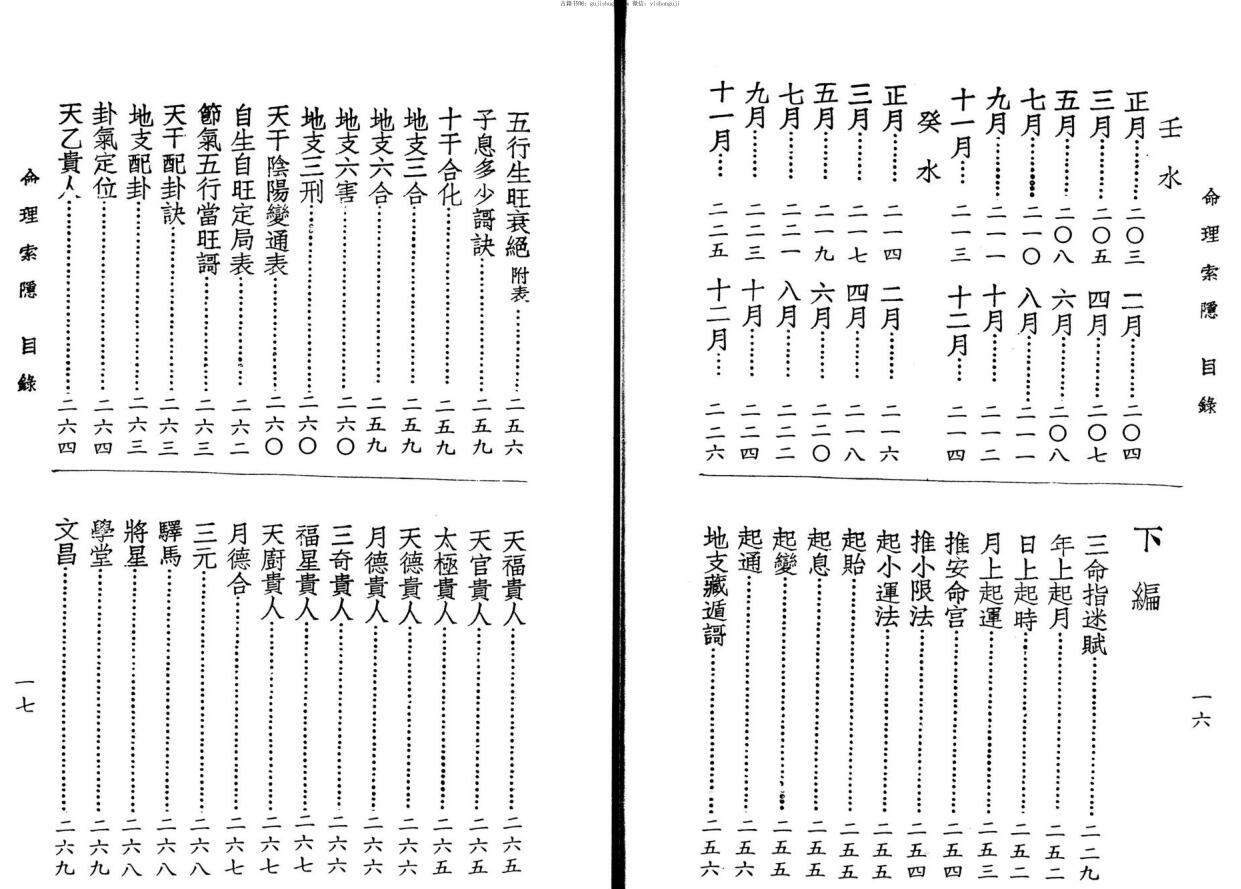 命理索隱 目錄
一六
壬水
正月……二〇三 二月……二〇四
三月……二〇五 四月……二〇七
五月……二〇八 六月……二〇八
七月……二一〇 八月……二一一
九月……二一一 十月……二一二
十一月…二一三 十二月…二一四
癸水
正月……二一四 二月……二一六
三月……二一七 四月……二一八
五月……二一九 六月……二二〇
七月……二二一 八月……二二二
九月……二二三 十月……二二四
十一月…二二五 十二月…二二六
下編
三命指迷賦……二二九
年上起月……二五二
日上起時……二五二
月上起運……二五三
推安命宮……二五四
推小限法……二五四
起小運法……二五五
起貽……二五五
起息……二五五
起變……二五五
起通……二五六
地支藏遁謌……二五六
五行生旺衰絕附表……二五六
子息多少謌訣……二五九
十干合化……二五九
地支三合……二五九
地支六合……二五九
地支六害……二六〇
地支三刑……二六〇
天干陰陽變通表……二六〇
自生自旺定局表……二六二
節氣五行當旺謌……二六三
天干配卦訣……二六三
地支配卦……二六三
卦氣定位……二六四
天乙貴人……二六四
天福貴人……二六五
天官貴人……二六五
太極貴人……二六五
天德貴人……二六六
月德貴人……二六六
三奇貴人……二六六
福星貴人……二六七
天廚貴人……二六七
月德合……二六七
三元……二六八
驛馬……二六八
將星……二六八
學堂……二六九
文昌……二六九
命理索隱 目錄
一七